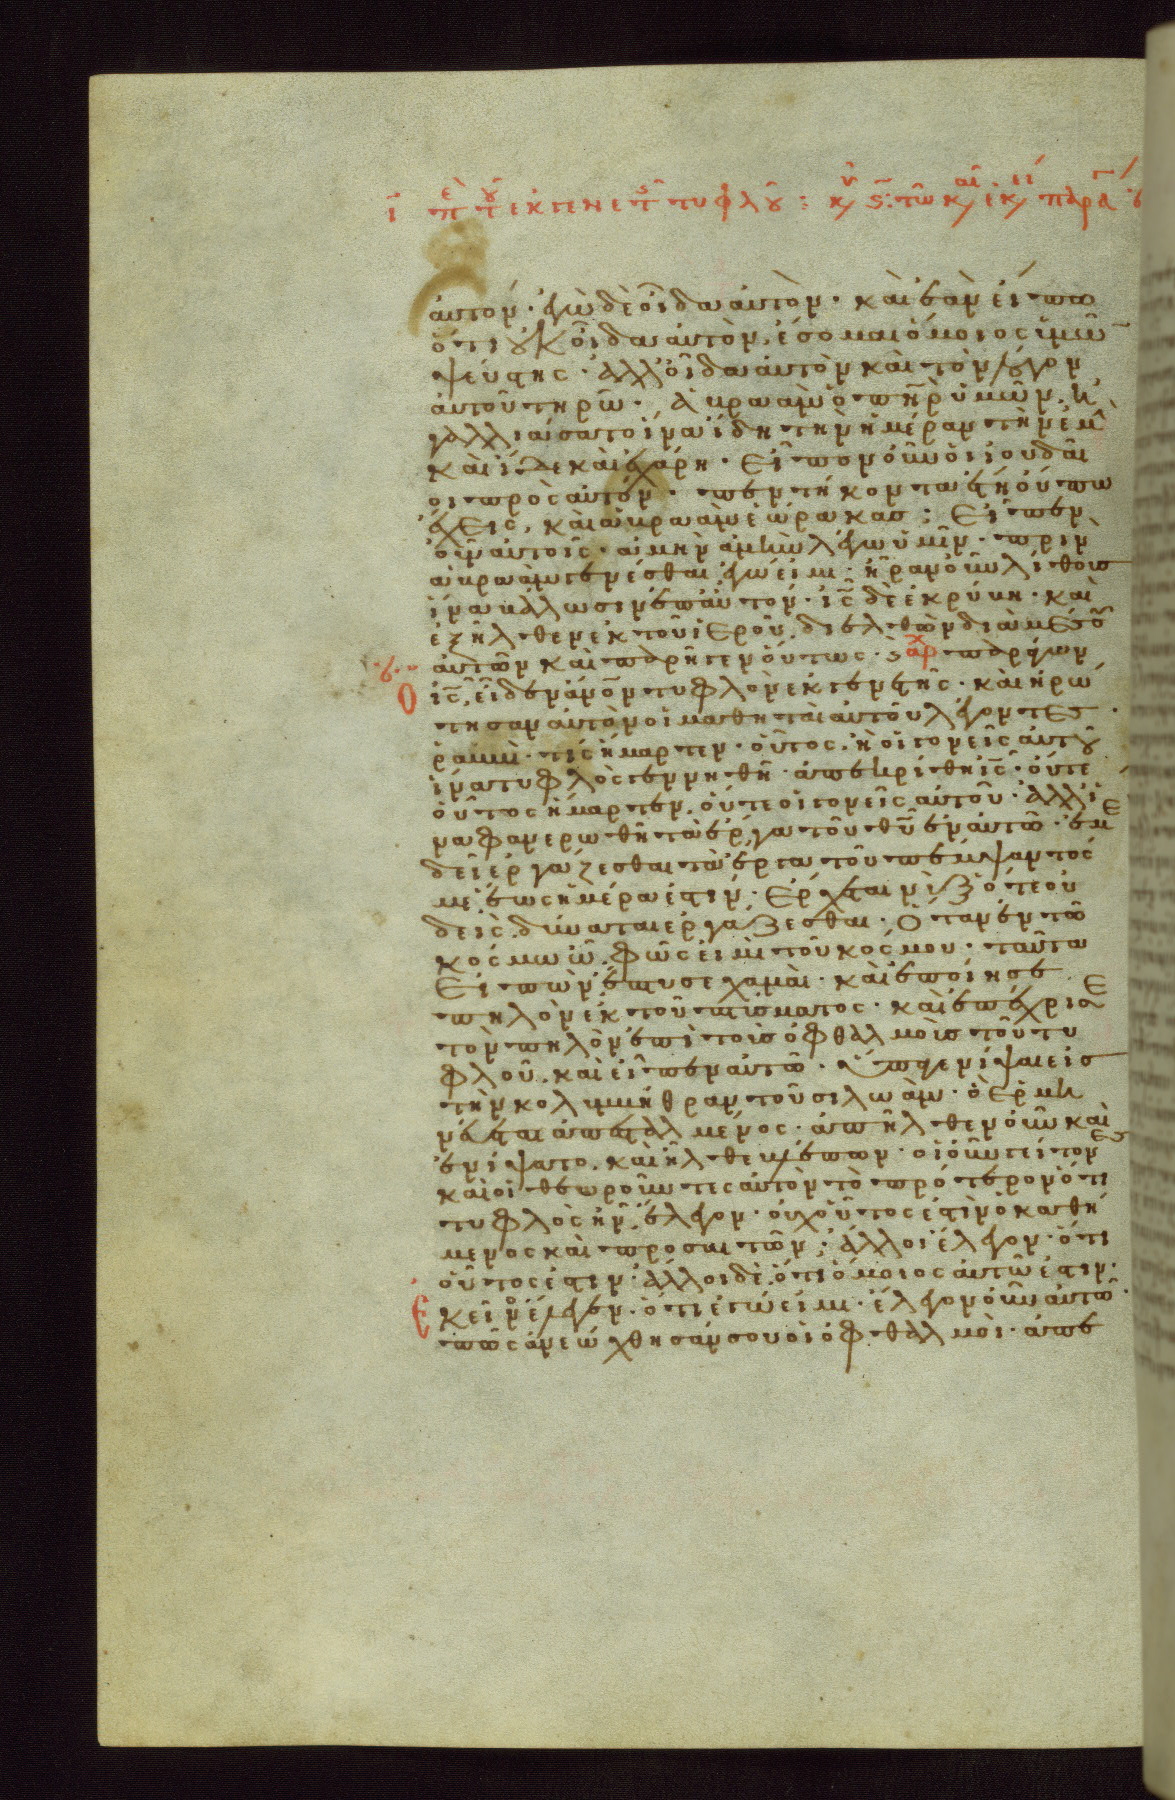 ῑ πὲ τοῦ ἐκ γενετῆς τυφλοῦ : κυ ϛ̄ τῶ κ/ ἐκ/ παρα
αὐτόν· ἐγὼ δὲ οἶδα αὐτόν· καὶ ἐὰν εἴπω
ὅτι οὐκ οἶδα αὐτὸν, ἔσομαι ὅμοιος ὑμῶ̅
ψεύστης· ἀλλ' οἶδα αὐτὸν καὶ τὸν λόγον
αὐτοῦ τηρῶ· Ἀβραὰμ ὁ πη̅ρ ὑμῶν, ἠ
γαλλιάσατο ἵνα ἴδη τὴν ἡμέραν τὴν ἐμὴ̅
καὶ ἴδε καὶ ἐχάρη· Εἶπον οὖν οἱ ἰουδαῖ
οι πρὸς αὐτόν· πεντήκοντα ἔτη οὔπω
ἔχεις, καὶ ἀβραὰμ ἑώρακας; Εἶπεν
οὖν αὐτοῖς· ἀμὴν ἀμὴν λέγω ὑμῖν· πρὶν
ἀβραὰμ γενέσθαι ἐγώ εἰμι· ἦραν οὖν λίθους
ἵνα βάλωσιν ἐπ' αὐτόν· ἰς̅ δὲ ἐκρύβη· καὶ
ἐξῆλθεν ἐκ τοῦ ἱεροῦ, διελθὼν διὰ μέσου
αὐτῶν καὶ παρῆγεν οὕτως· αρχ παράγων
Ὁ ἰς̅, εἶδεν ἄνο̅ν τυφλὸν ἐκ γενετῆς· καὶ ἠρώ
τησαν αὐτὸν οἱ μαθηταὶ αὐτοῦ λέγοντες·
ῥαββὶ· τίς ἥμαρτεν· οὗτος, ἢ οἱ γονεῖς αὐτοῦ
ἵνα τυφλὸς γεννηθῆ· ἀπεκρίθη ἰς̅· οὔτε
οὗτος ἥμαρτεν, οὔτε οἱ γονεῖς αὐτοῦ· ἀλλ' ἵ
να φανερωθῆ τὰ ἔργα τοῦ θυ̅ ἐν αὐτῶ· ἐμὲ
δεῖ ἐργάζεσθαι τὰ ἔργα τοῦ πέμψαντός
με ἕως ἡμέρα ἐστίν· Ἔρχεται νὺξ ὅτε οὐ
δεὶς δύναται ἐργάζεσθαι· Ὅταν ἐν τῶ
κόσμω ὦ, φῶς εἰμι τοῦ κόσμου· ταῦτα
Εἰπὼν ἔπτυσε χαμαὶ· καὶ ἐποίησε
πηλὸν ἐκ τοῦ πτύσματος· καὶ ἐπέχρισε
τὸν πηλὸν ἐπὶ τοὺς ὀφθαλμοὺς τοῦ τυ
φλοῦ, καὶ εἶπεν αὐτῶ· ὕπαγε νίψαι εἰς
τὴν κολυμβήθραν τοῦ σιλωὰμ· ὃ ἑρμη
νεύεται ἀπεσταλμένος· ἀπῆλθεν οὖν καὶ
ἐνίψατο, καὶ ἦλθε βλέπων· οἱ οὖν γείτονες
καὶ οἱ θεωροῦντες αὐτὸν τὸ πρότερον ὅτι
τυφλὸς ἦν, ἔλεγον· οὐχ οὗτος ἐστὶν ὁ καθή
μενος καὶ προσαιτῶν; ἄλλοι ἔλεγον· ὅτι
οὗτος ἐστιν· ἄλλοι δὲ, ὅτι ὅμοιος αὐτῶ ἐστιν·
Ἐκεῖνος ἔλεγεν· ὅτι ἐγώ εἰμι· ἔλεγον οὖν αὐτῶ·
πῶς ἀνεώχθησάν σου οἱ ὀφθαλμοὶ· ἀπε